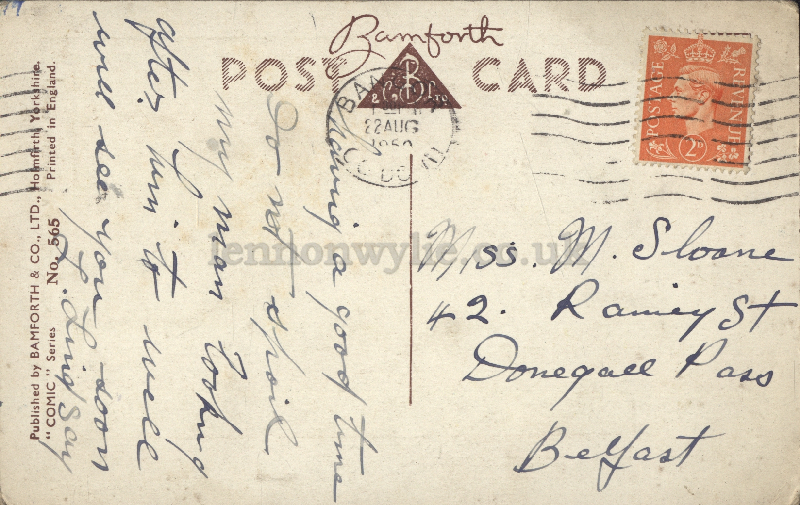 Bamforth
POST CARD
& Co Ltd
BAN
22 AUG
195
CO. DOWN
POSTAGE REVENUE
2D
Published by BAMFORTH & CO., LTD., Holmfirth, Yorkshire.
"COMIC" Series No. 565 Printed in England.
Having a good time
Do not spoil
my man looking
after him to well
will see you soon
Lindsay
Miss. M. Sloane
42. Rainey St
Donegall Pass
Belfast
lennonwylie.co.uk